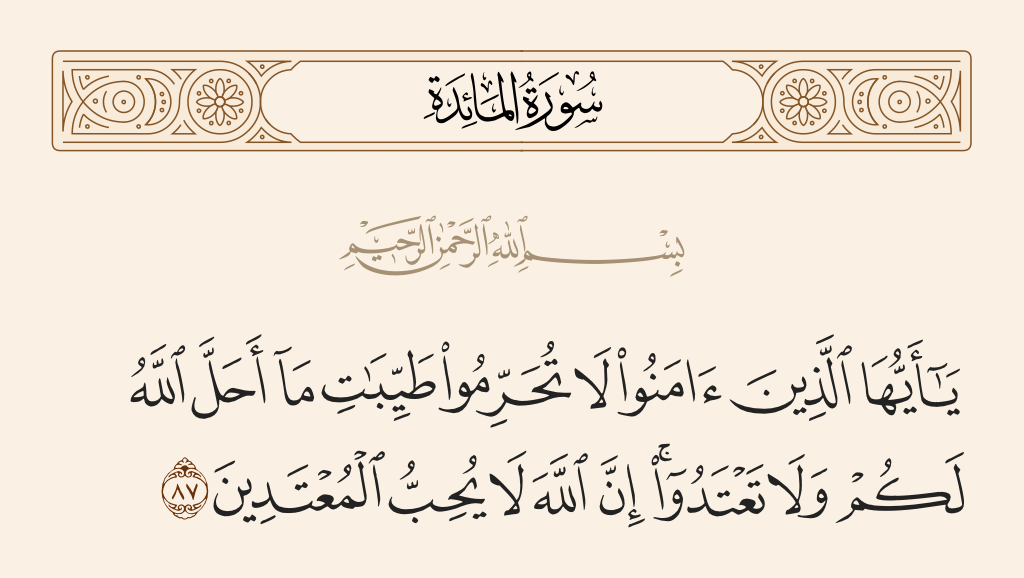 سُورَةُ المَائِدَةِ
بِسْمِ ٱللَّهِ ٱلرَّحْمَٰنِ ٱلرَّحِيمِ
يَـٰٓأَيُّهَا ٱلَّذِينَ ءَامَنُوا۟ لَا تُحَرِّمُوا۟ طَيِّبَـٰتِ مَآ أَحَلَّ ٱللَّهُ
لَكُمْ وَلَا تَعْتَدُوٓا۟ ۚ إِنَّ ٱللَّهَ لَا يُحِبُّ ٱلْمُعْتَدِينَ ٨٧